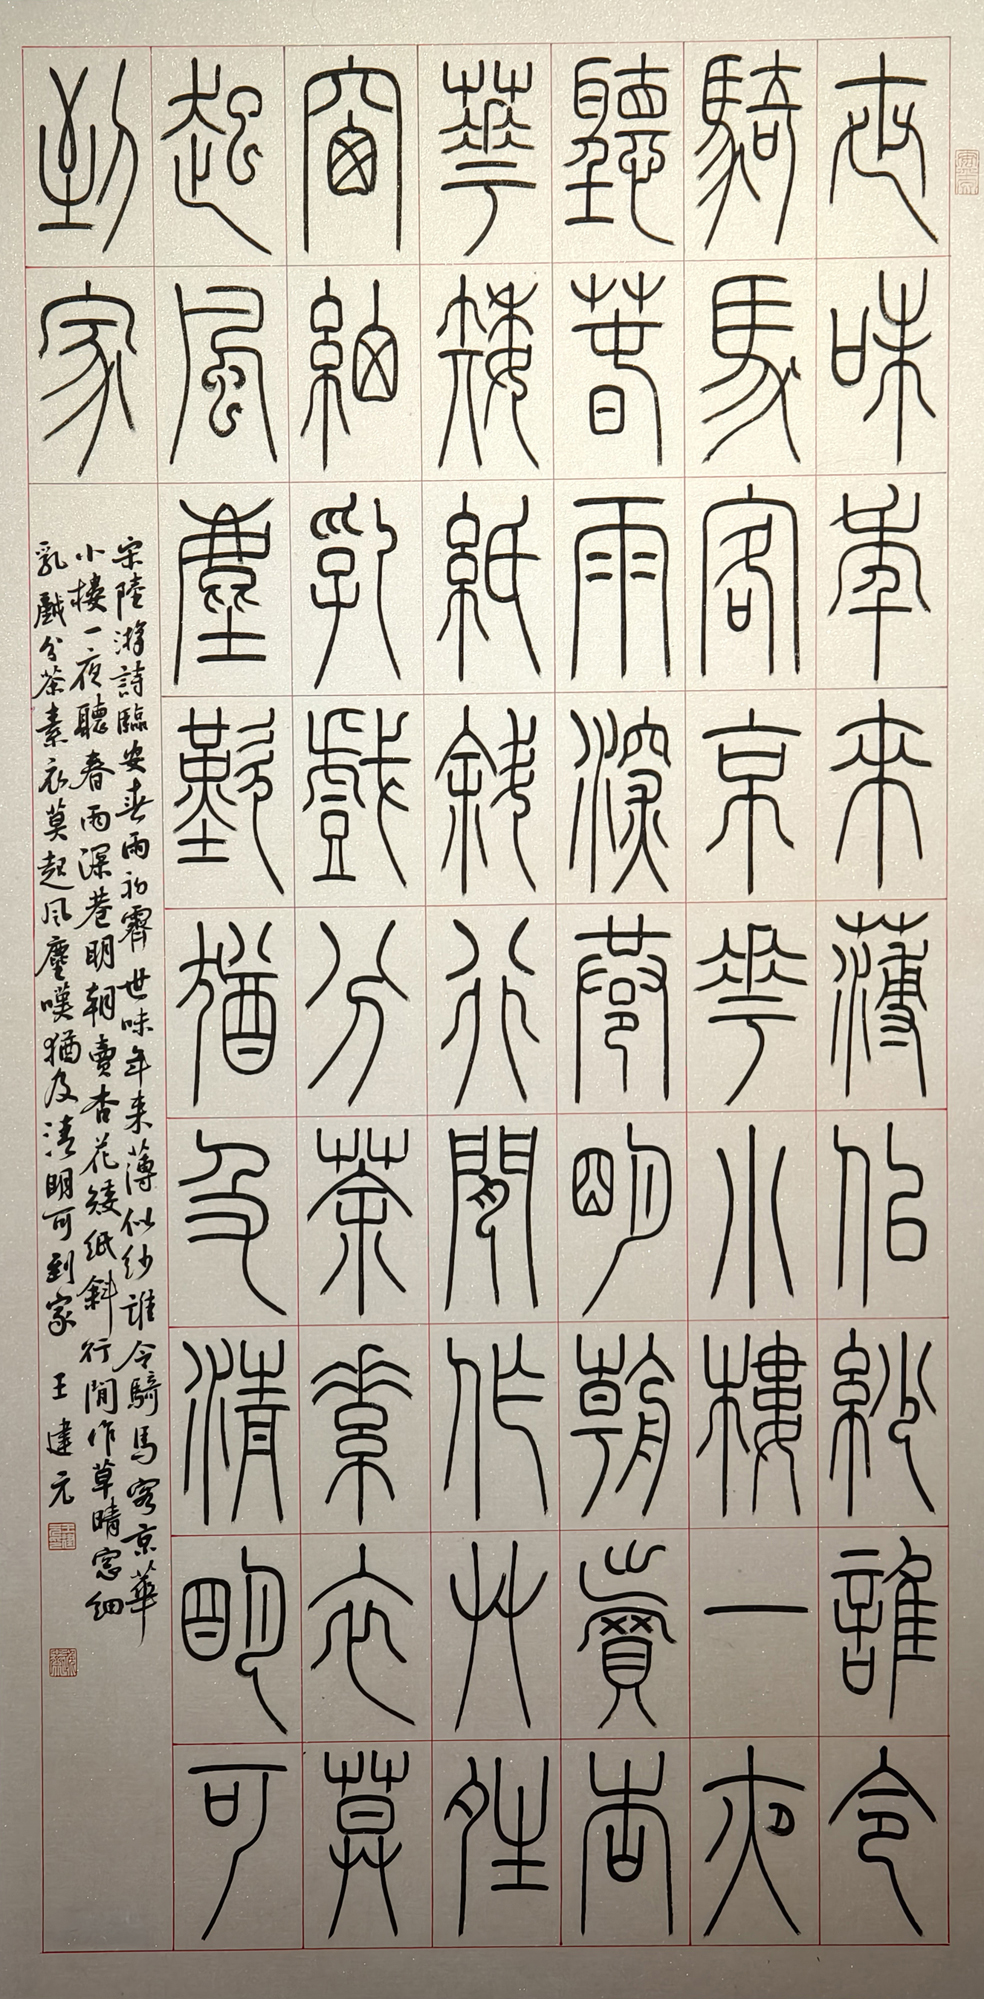 世味年來薄似紗誰令
騎馬客京華小樓一夜
聽春雨深巷明朝賣杏
華矮紙斜行閒作艸晴
窗細乳戲分茶素衣莫
起風塵歎猶及清明可
到家
宋陸游詩臨安春雨初霽世味年来薄似紗誰令騎馬客京華
小樓一夜聽春雨深巷明朝賣杏花矮紙斜行閒作草晴窓細
乳戲分茶素衣莫起風塵嘆猶及清明可到家 王建元